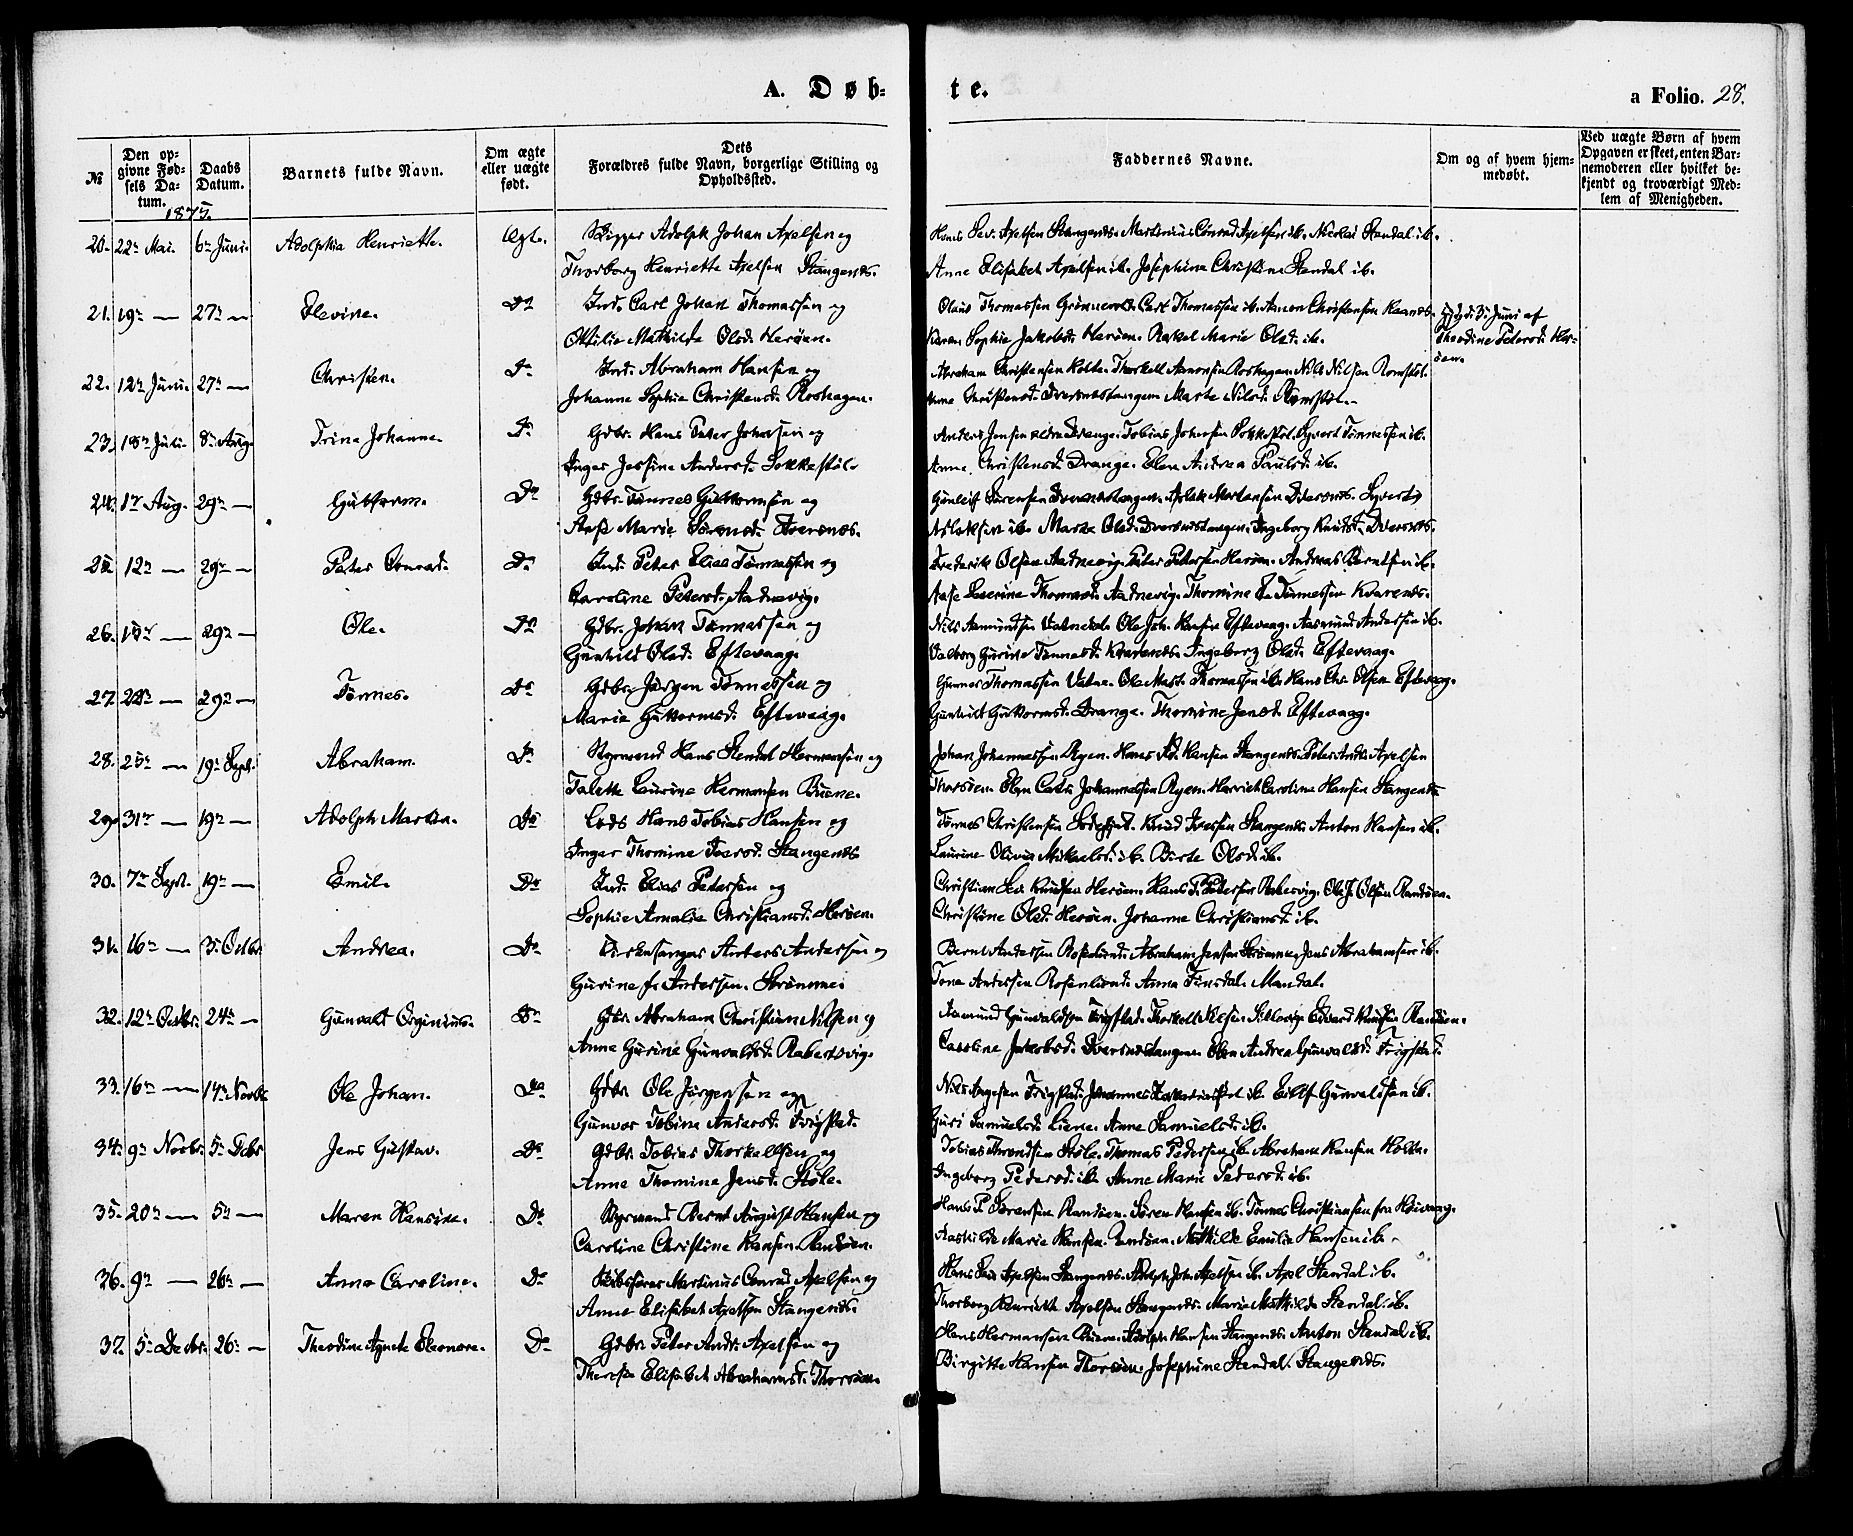 A. Døb-
te.
a Folio. 28.
№
Den op-
givne Fød-
sels Da-
tum.
1875.
Daabs
Datum.
Barnets fulde Navn.
Om ægte
eller uægte
født.
Dets
Forældres fulde Navn, borgerlige Stilling og
Opholdssted.
Faddernes Navne.
Om og af hvem hjem-
medøbt.
Ved uægte Børn af hvem
Opgaven er skeet, enten Bar-
nemoderen eller hvilket be-
kjendt og troværdigt Med-
lem af Menigheden.
20. 22n Mai. 6n Juni. Adolphia Henriette. Ægt. Skipper Adolph Johan Axelsen og
Thorborg Henriette Axelsen Stangenæs.
Hans Sev. Axelsen Stangenæs. Martinius Conrad Axelsen ib. Nicolai Stendal ib.
Anne Elisabet Axelsen ib. Josephine Christine Stendal ib.
21. 19n — 27n — Elevine. Do Ind. Carl Johan Thomassen og
Ottilie Mathilde Olsd. Herøen.
Olaus Thomassen. Carl Thomassen ib. Aanon Christensen
Karen Sophie Jakobsd. Herøen. Rakel Marie Olsd. ib.
3. Juni af
Theodine Petersd. Her-
øen.
22. 12n Juni. 27n — Christen. Do Ind. Abraham Hansen og
Johanne Sophie Christensd. Roshagen.
Abraham Christensen Holte. Thorkell Aanonsen Roshagen. Nils Nilsen Romstøl.
Anne Christensd. Dversnestangen Marte Nilsd. Romstøl.
23. 18n Juli. 8n Aug. Trine Johanne. Do Gdbr. Hans Peter Johnsen og
Inger Jessine Andersd. Sokkestøl.
Anders Jensen Drange. Tobias Johnsen Sokkestøl. Syvert Tønnessen ib.
Anne Christensd. Drange. Elen Andrea Paulsd. ib.
24. 1n Aug. 29n — Guttorm. Do Gdbr. Tønnes Guttormsen og
Aase Marie Sørensd. Dversnæs.
Gunleif Sørensen Dversnestangen. Aslak Mortensen Dversnæs. Syvert
Aslaksen ib. Marte Olsd. Dversnestangen. Ingeborg Knudsd. Dversnæs.
25. 12n — 29n — Peter Conrad. Do Ind. Peter Elias Tønnessen og
Caroline Petersd. Aadnevig.
Frederik Olsen Aadnevig. Peter Petersen Herøen. Andreas Berntsen ib.
Aase Severine Thomasd. Aadnevig. Thomine E. Tønnessen Kvarenæs.
26. 29n — Ole. Do Gdbr. Johan Tønnessen og
Gunhild Olsd. Eftevaag.
Nils Aamundsen. Ole Joh. Hansen Eftevaag. Aasmund Andersen ib.
Valborg Gurine Tønnesd. Kvarenæs. Ingeborg Olsd. Eftevaag.
27. 22n — 29n — Tønnes. Do Gdbr. Jørgen Tønnessen og
Marie Guttormsd. Eftevaag.
Gunner Thomassen Vatne. Ole Mart. Thomassen ib. Hans Chr. Olsen Eftevaag.
Gunhild Guttormsd. Drange. Thomine Jensd. Eftevaag.
28. 25n — 19n Sept. Abraham. Do Styrmand Hans Stendal Hermansen og
Talette Laurine Hermansen Buene.
Johan Johannessen Ryen. Hans Ad. Hansen Stangenæs. Peter Andr. Axelsen
Thorsøen. Elen Cath. Johannessen Ryen. Harriet Caroline Hansen Stangenæs.
29. 31n — 19n — Adolph Martin. Do Lods Hans Tobias Hansen og
Inger Thomine Iversd. Stangenæs.
Tønnes Christensen. Knud Iversen Stangenæs. Anton Hansen ib.
Laurine Olivia Mikaelsd. ib. Birte Olsd. ib.
30. 7n Sept. 19n — Emil. Do Ind. Elias Petersen og
Sophie Amalie Christiansd. Herøen.
Christian Sev. Knudsen Herøen. Hans P. Pedersen Rabersvig. Ole J. Olsen Randøen.
Christine Olsd. Herøen. Johanne Christiansd. ib.
31. 16n — 3n Octbr. Andrea. Do Kirkesanger Anders Andersen og
Gurine f. Andersen. Strømme.
Bernt Andersen Rosenlund. Abraham Jensen Strømme. Jens Abrahamsen ib.
Tone Andersen Rosenlund. Anna Finsdal. Mandal.
32. 12n Octbr. 24n — Gunvald Orginius. Do Gdbr. Abraham Christian Nilsen og
Anne Gurine Gunvaldsd. Rabersvig.
Aamund Gunvaldsen Frigstad. Thorkell Nilsen. Edvard Knudsen Randøen.
Caroline Jakobsd. Dversnestangen. Elen Andrea Gunvaldsd. Frigstad.
33. 16n — 14n Novbr. Ole Johan. Do Gdbr. Ole Jørgensen og
Gunvor Tobine Andersd. Frigstad.
Nils Aagesen Frigstad. Johannes ib. Eilef Gunvaldsen ib.
Guri Samuelsd. Liene. Anne Samuelsd. ib.
34. 9n Novbr. 5n Decbr. Jens Gustav. Do Gdbr. Tobias Thorkellsen og
Anne Thomine Jensd. Støle.
Tobias Throndsen Støle. Thomas Pedersen ib. Abraham Hansen Holte.
Ingeborg Pedersd. ib. Anne Marie Pedersd. ib.
35. 20n — 5n — Maren Hansine. Do Styrmand Bernt August Hansen og
Caroline Christine Hansen. Randøen.
Hans P. Sørensen Randøen. Søren Hansen ib. Tønnes Christiansen fra Høivaag.
Aashilde Marie Hansen. Randøen. Mathilde Emilie Hansen ib.
36. 9n — 26n — Anne Caroline. Do Skibsfører Martinius Conrad Axelsen og
Anne Elisabet Axelsen Stangenæs.
Hans Sev. Axelsen Stangenæs. Adolph Joh. Axelsen ib. Axel Stendal ib.
Thorborg Henriette Axelsen Stangenæs. Marie Mathilde Stendal. ib.
37. 5n Decbr. 26n — Theodine Agnete Eleonore. Do Gdbr. Peter Andr. Axelsen og
Therese Elisabet Abrahamsd. Thorsøen.
Hans Hermansen Buene. Adolph Hansen Stangenæs. Anton Stendal ib.
Birgitte Hansen Thorsøen. Josephine Stendal. Stangenæs.